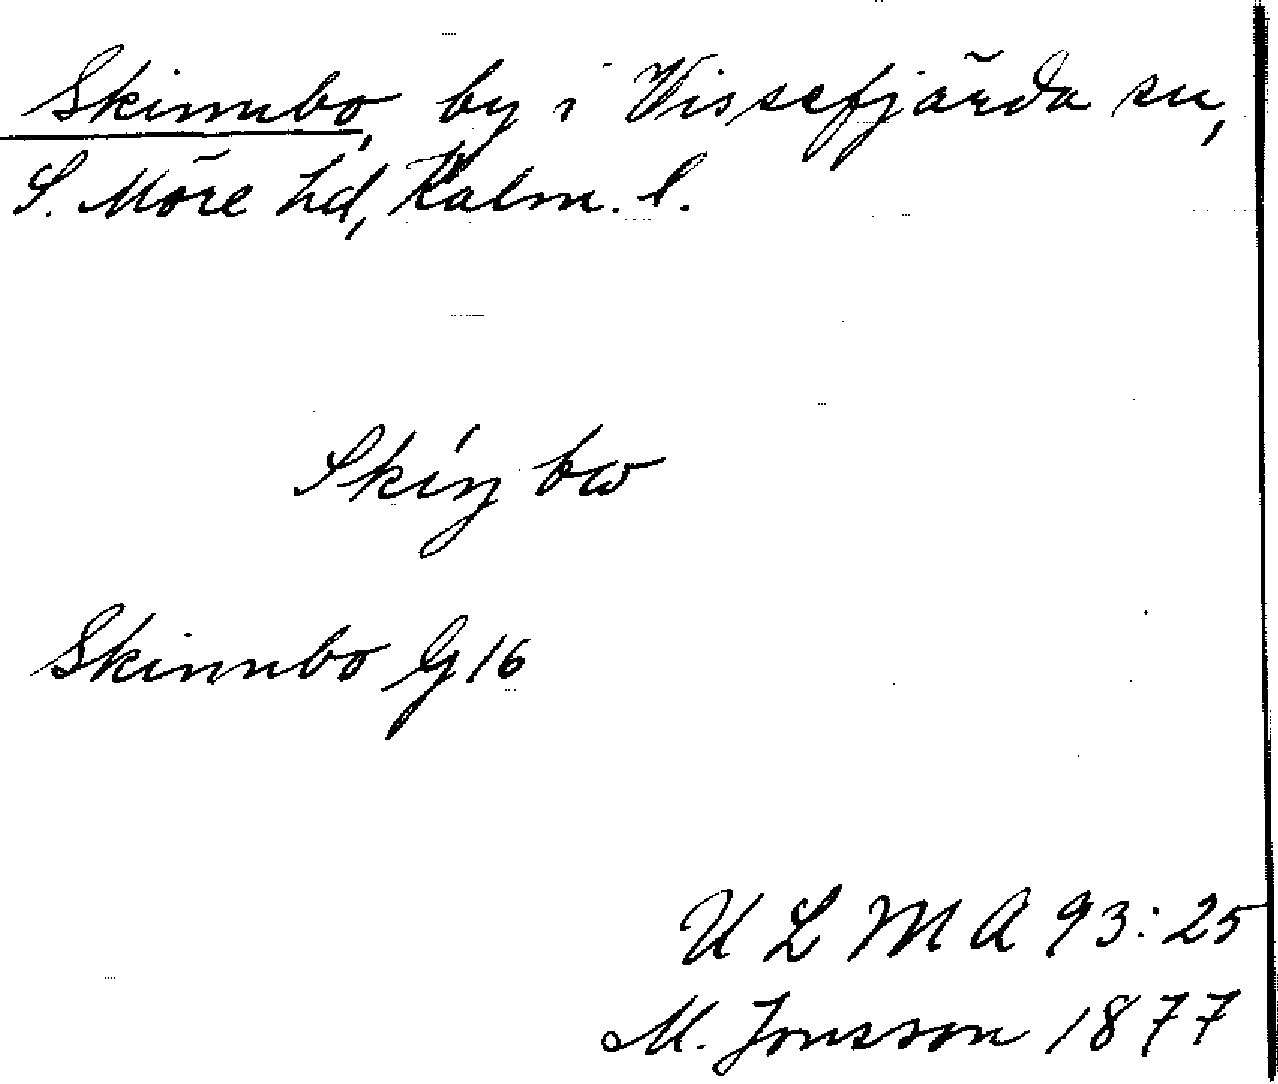 Skinnbo, by i Vissefjärda sn,
S. Möre hd, Kalm. l.
Skiŋ bω
Skinnbo G 16
U L M A 93:25
M. Jonsson 1877